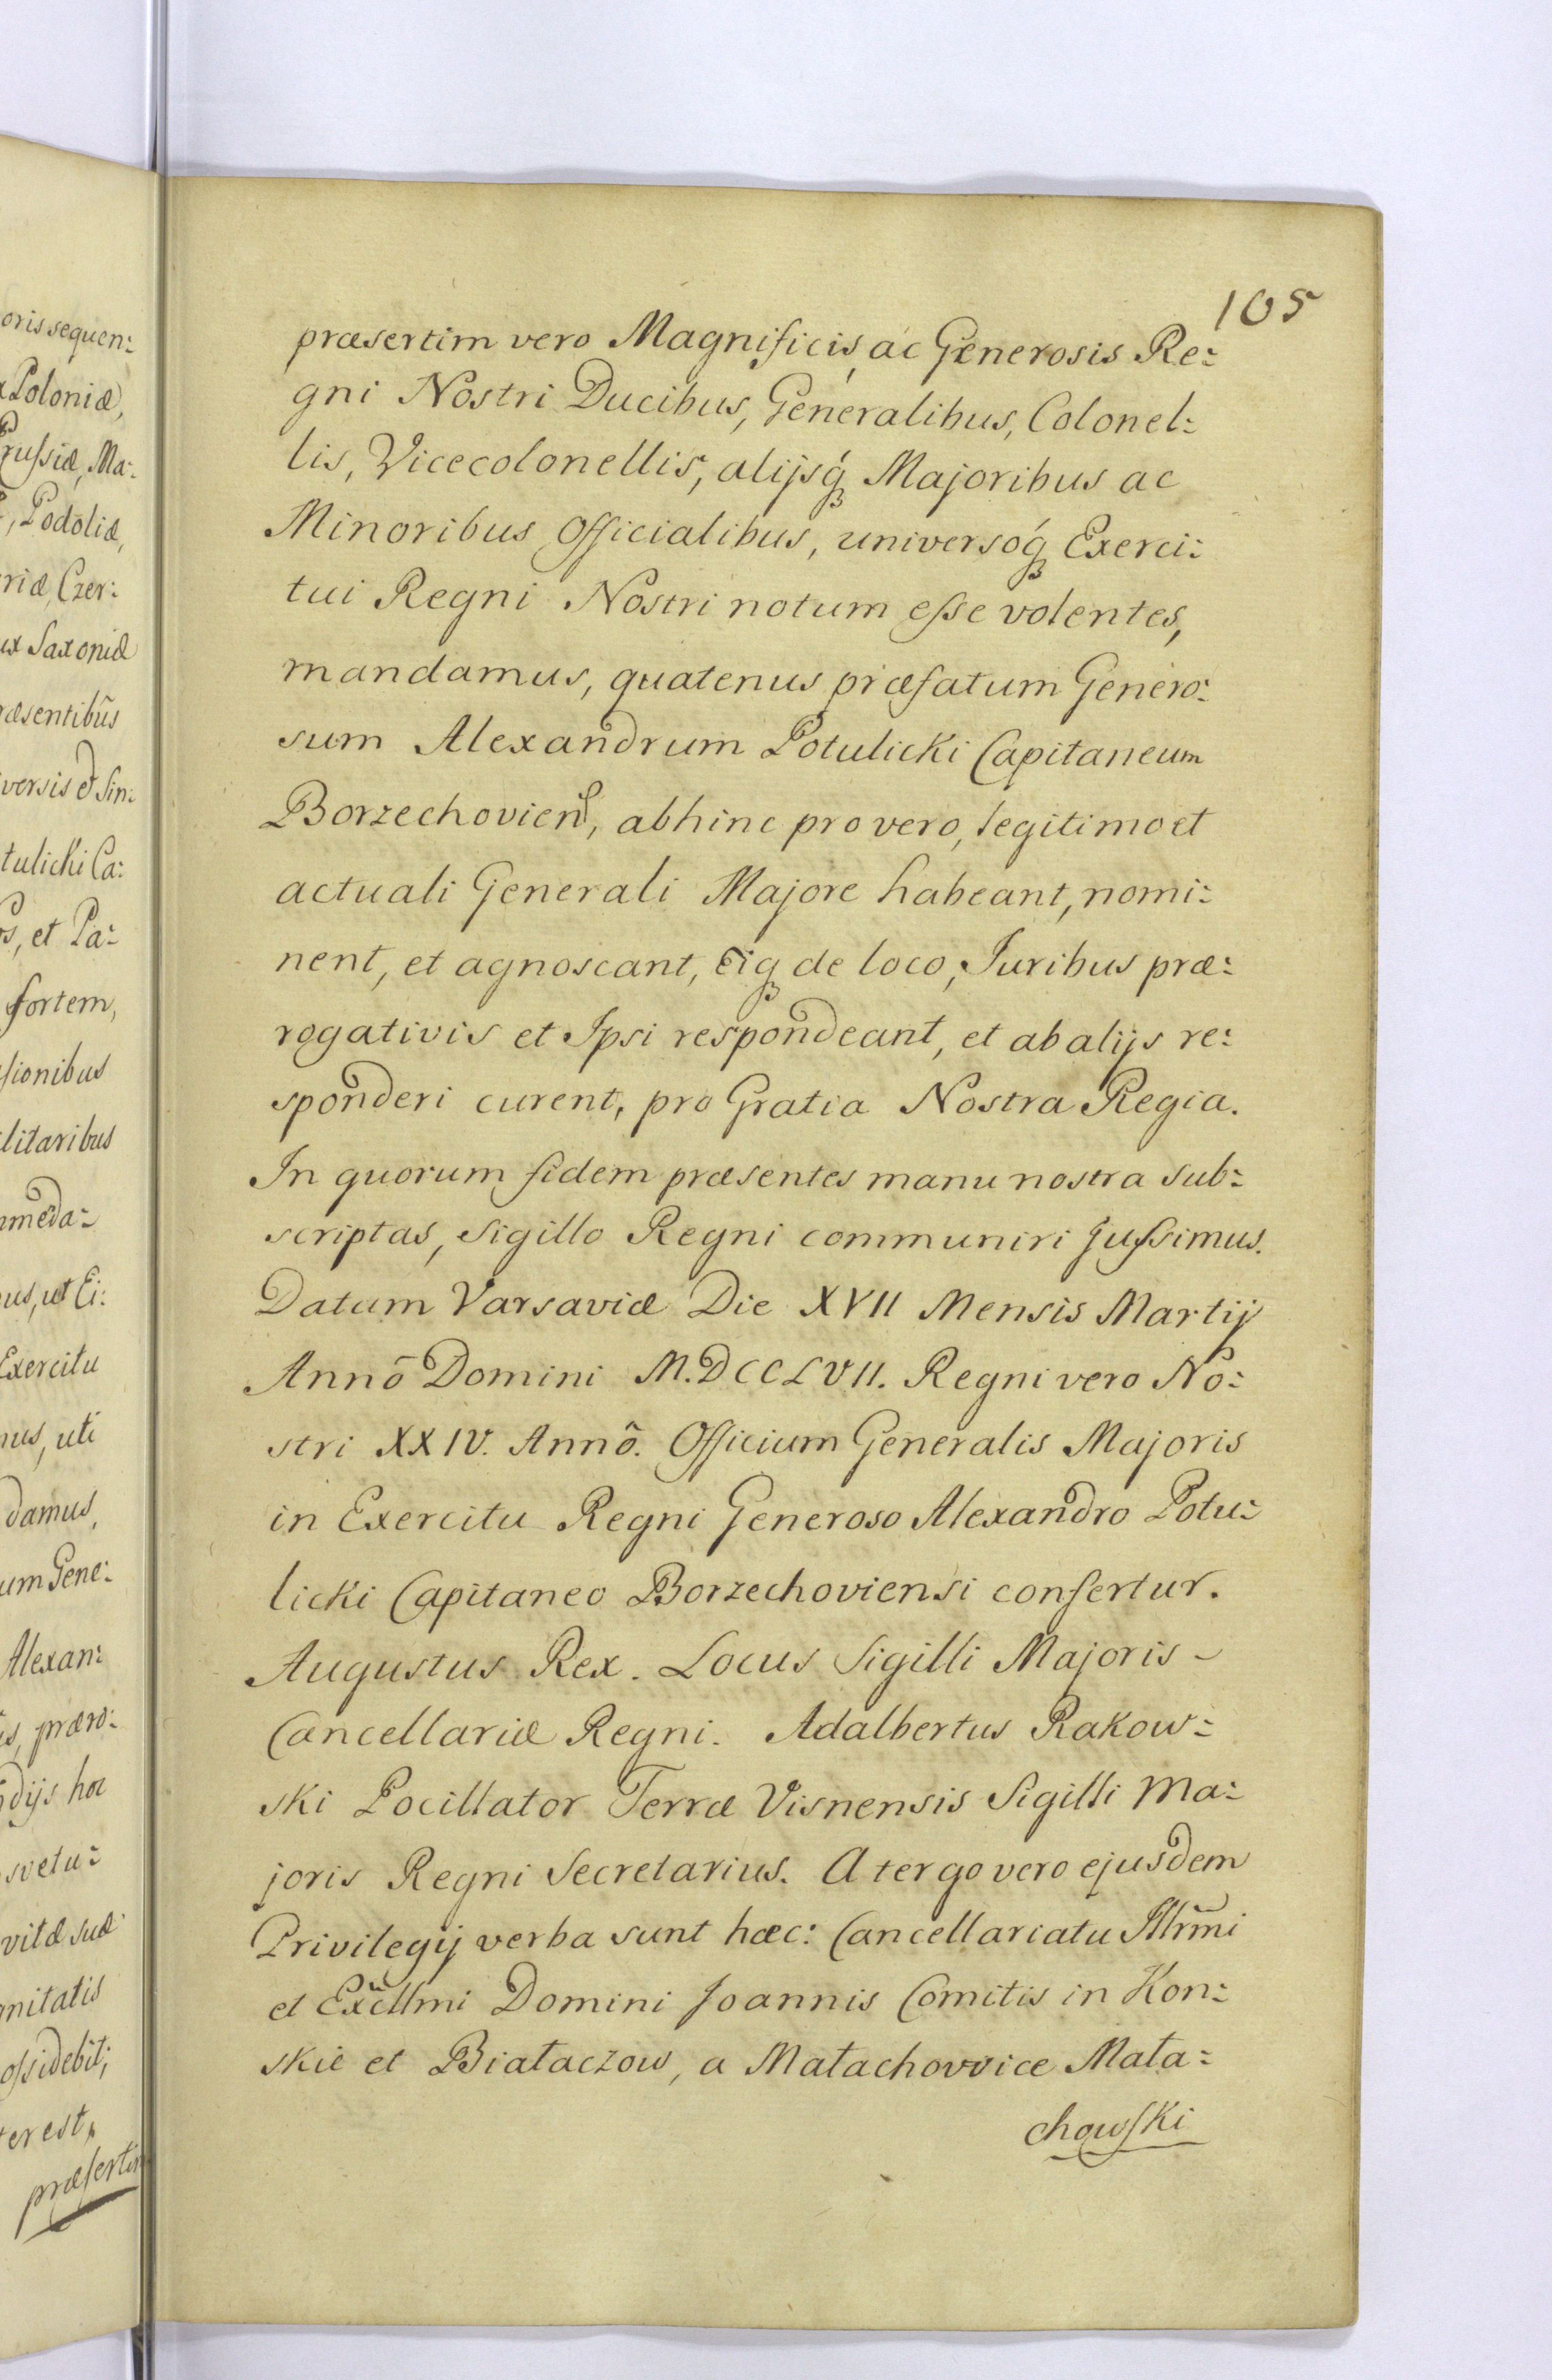 oris sequen:
Poloniæ,
Prussiæ, Ma:
Podoliæ,
riæ, Czer:
ux Saxoniæ
ræsentibus
versis et Sin:
tulicki Ca:
os, et Pa:
fortem,
ssionibus
litaribus
meda:
us, ut Ei:
Exercitu
mus, uti
damus,
um Gene:
Alexan:
is, præro:
dijs hoc
svetu:
vitæ suæ
gnitatis
ossidebit;
terest,
præsertim
105
præsertim vero Magnificis, ac Generosis Re:
gni Nostri Ducibus, Generalibus, Colonel:
lis, Vicecolonellis, alijsq́ꝫ Majoribus ac
Minoribus Officialibus, universoq́ꝫ Exerci:
tui Regni Nostri notum esse volentes,
mandamus, quatenus præfatum Genero:
sum Alexandrum Potulicki Capitaneum
Borzechovien̄, abhinc pro vero, legitimo et
actuali Generali Majore habeant, nomi:
nent, et agnoscant, Eiqꝫ de loco, Juribus præ:
rogativis et Ipsi respondeant, et ab alijs re:
sponderi curent, pro Gratia Nostra Regia.
In quorum fidem præsentes manu nostra sub:
scriptas, Sigillo Regni communiri jussimus.
Datum Varsaviæ Die XVII Mensis Martij
Annõ Domini M.DCCLVII. Regni vero No:
stri XXIV. Annõ. Officium Generalis Majoris
in Exercitu Regni Generoso Alexandro Potu:
licki Capitaneo Borzechoviensi confertur.
Augustus Rex. Locus Sigilli Majoris -
Cancellariæ Regni. Adalbertus Rakow:
ski Pocillator Terræ Visnensis Sigilli Ma:
joris Regni Secretarius. A tergo vero ejusdem
Privilegij verba sunt hæc: Cancellariatu Illr̃mi
et Exc̃llmi Domini Joannis Comitis in Kon:
skie et Białaczow, a Małachowice Mała:
chowski